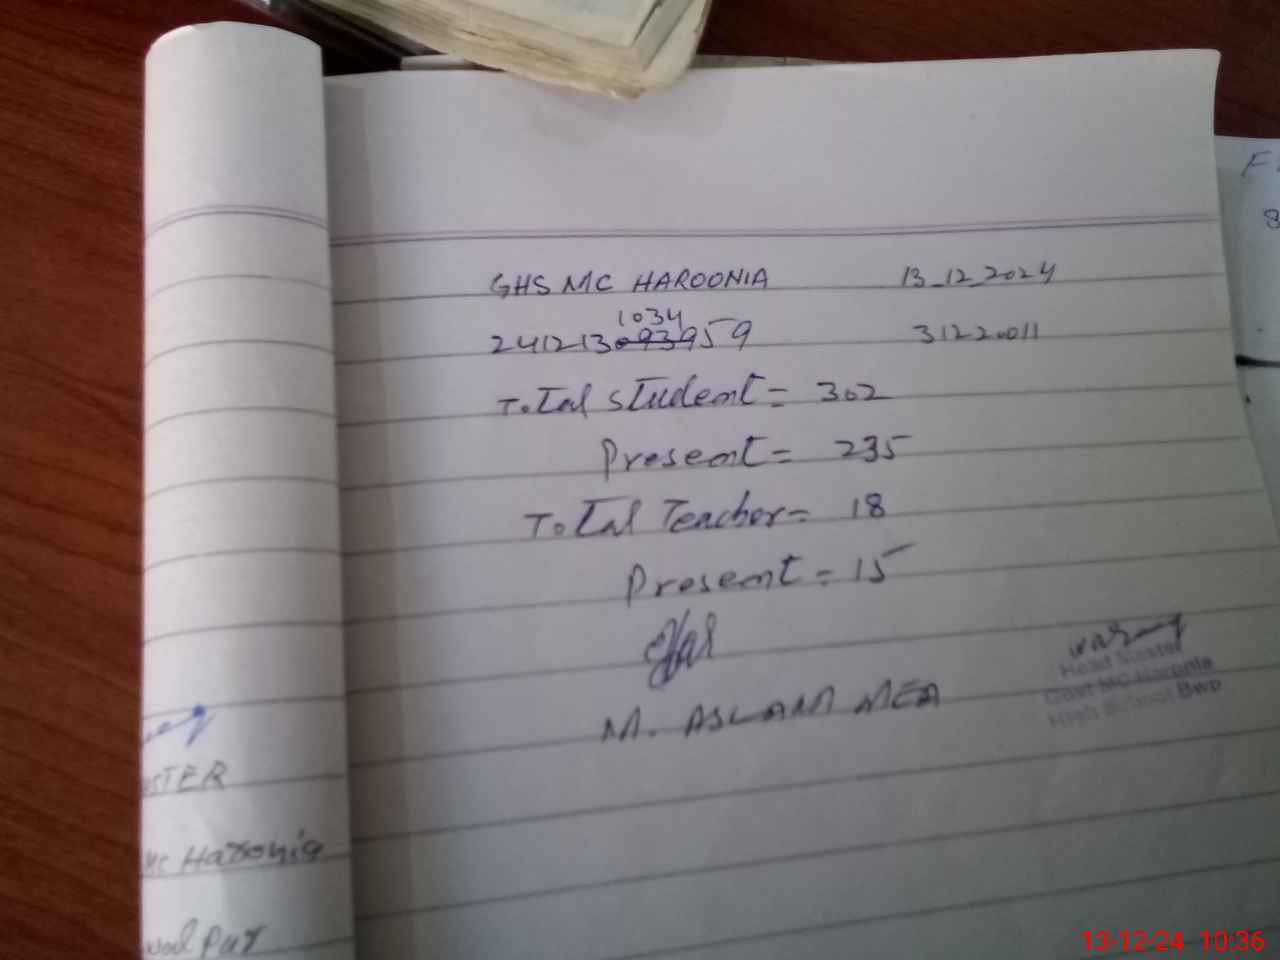 GHS MC HAROONIA 13_12_2024
1034
241213093959 31220011
Total student = 302
Present = 235
Total Teacher = 18
Present = 15
M. ASLAM MEA
Head Master
Govt MC Haronia
High School Bwp
STER
MC Haronia
Pur
F
8
13-12-24 10:36